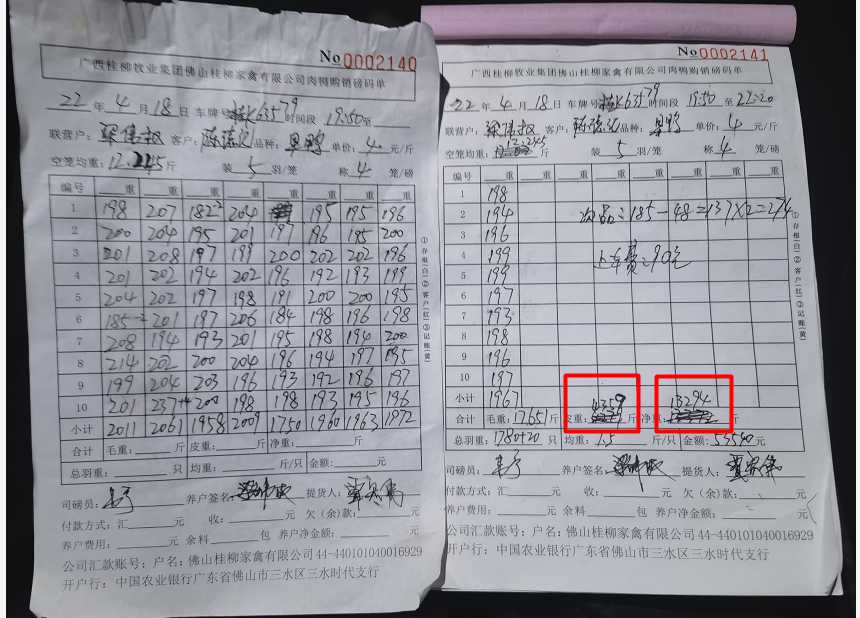 No 0002140
广西桂柳牧业集团佛山桂柳家禽有限公司肉鸭购销磅码单
22 年 4 月 18 日 车牌号 时间段 19:50 至
联营户: 梁伟权 客户: 品种: 单价: 4 元/斤
空笼均重: 12.245 斤 装 5 羽/笼 称 4 笼/磅
编号 重 重 重 重 重 重 重 重
1 198 207 182 204 195 195 196
2 200 204 195 201 197 196 195 200
3 201 208 197 199 200 202 202 196
4 201 202 194 202 196 192 193 199
5 204 202 197 198 191 200 200 195
6 185-2 201 187 206 184 198 196 198
7 208 194 193 201 195 198 194 200
8 214 202 200 204 196 194 197 195
9 199 204 203 196 193 192 196 197
10 201 237+4 200 198 198 193 195 196
小计 2011 2061 1958 2009 1750 1960 1963 1972
合计 毛重: 斤 皮重: 斤 净重: 斤
总羽重: 只 均重: 斤/只 金额: 元
司磅员: 养户签名: 提货人:
付款方式: 汇 元 收: 元 欠(余)款: 元
养户费用: 元 余料 包 养户净金额: 元
公司汇款账号: 户名: 佛山桂柳家禽有限公司 44-440101040016929
开户行: 中国农业银行广东省佛山市三水区三水时代支行
①存根(白)②客户(红)③记账(黄)
No 0002141
广西桂柳牧业集团佛山桂柳家禽有限公司肉鸭购销磅码单
22 年 4 月 18 日 车牌号 时间段 19:50 至 22:20
联营户: 梁伟权 客户: 品种: 单价: 4 元/斤
空笼均重: 12.245 斤 装 5 羽/笼 称 4 笼/磅
编号 重 重 重 重 重 重 重 重
1 198
2 194 次品: 185-48=137×2=274
3 196
4 199 上车费: 90元
5 199
6 197
7 193
8 198
9 196
10 197
小计 1967 4359 13294
合计 毛重: 17651 斤 皮重: 斤 净重: 斤
总羽重: 1780+20 只 均重: 斤/只 金额: 元
司磅员: 养户签名: 提货人:
付款方式: 汇 元 收: 元 欠(余)款: 元
养户费用: 元 余料 包 养户净金额: 元
公司汇款账号: 户名: 佛山桂柳家禽有限公司 44-440101040016929
开户行: 中国农业银行广东省佛山市三水区三水时代支行
①存根(白)②客户(红)③记账(黄)